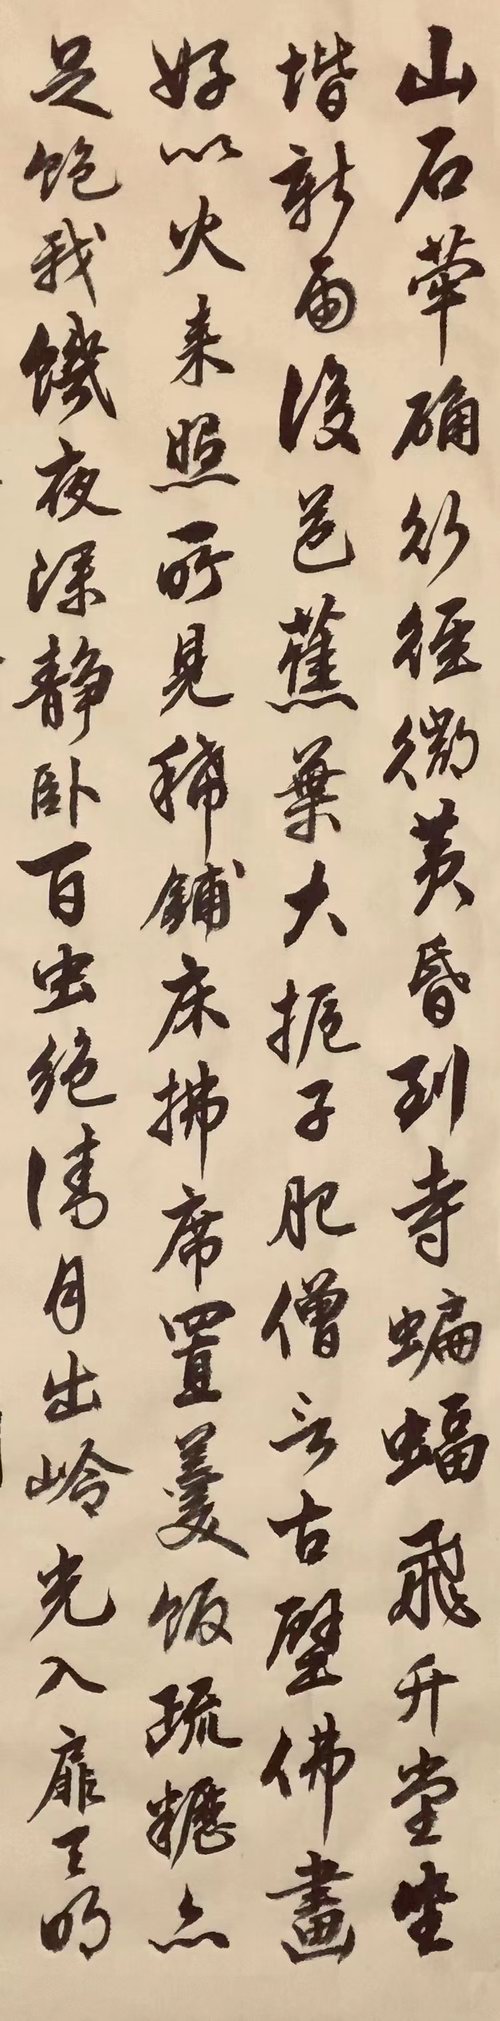 山石荦确行径微黄昏到寺蝙蝠飞升堂坐
堦新雨後芭蕉葉大栀子肥僧言古壁佛畫
好以火来照所見稀鋪床拂席置羹飯疏糲亦
足飽我饑夜深静卧百虫绝清月出岭光入扉天明